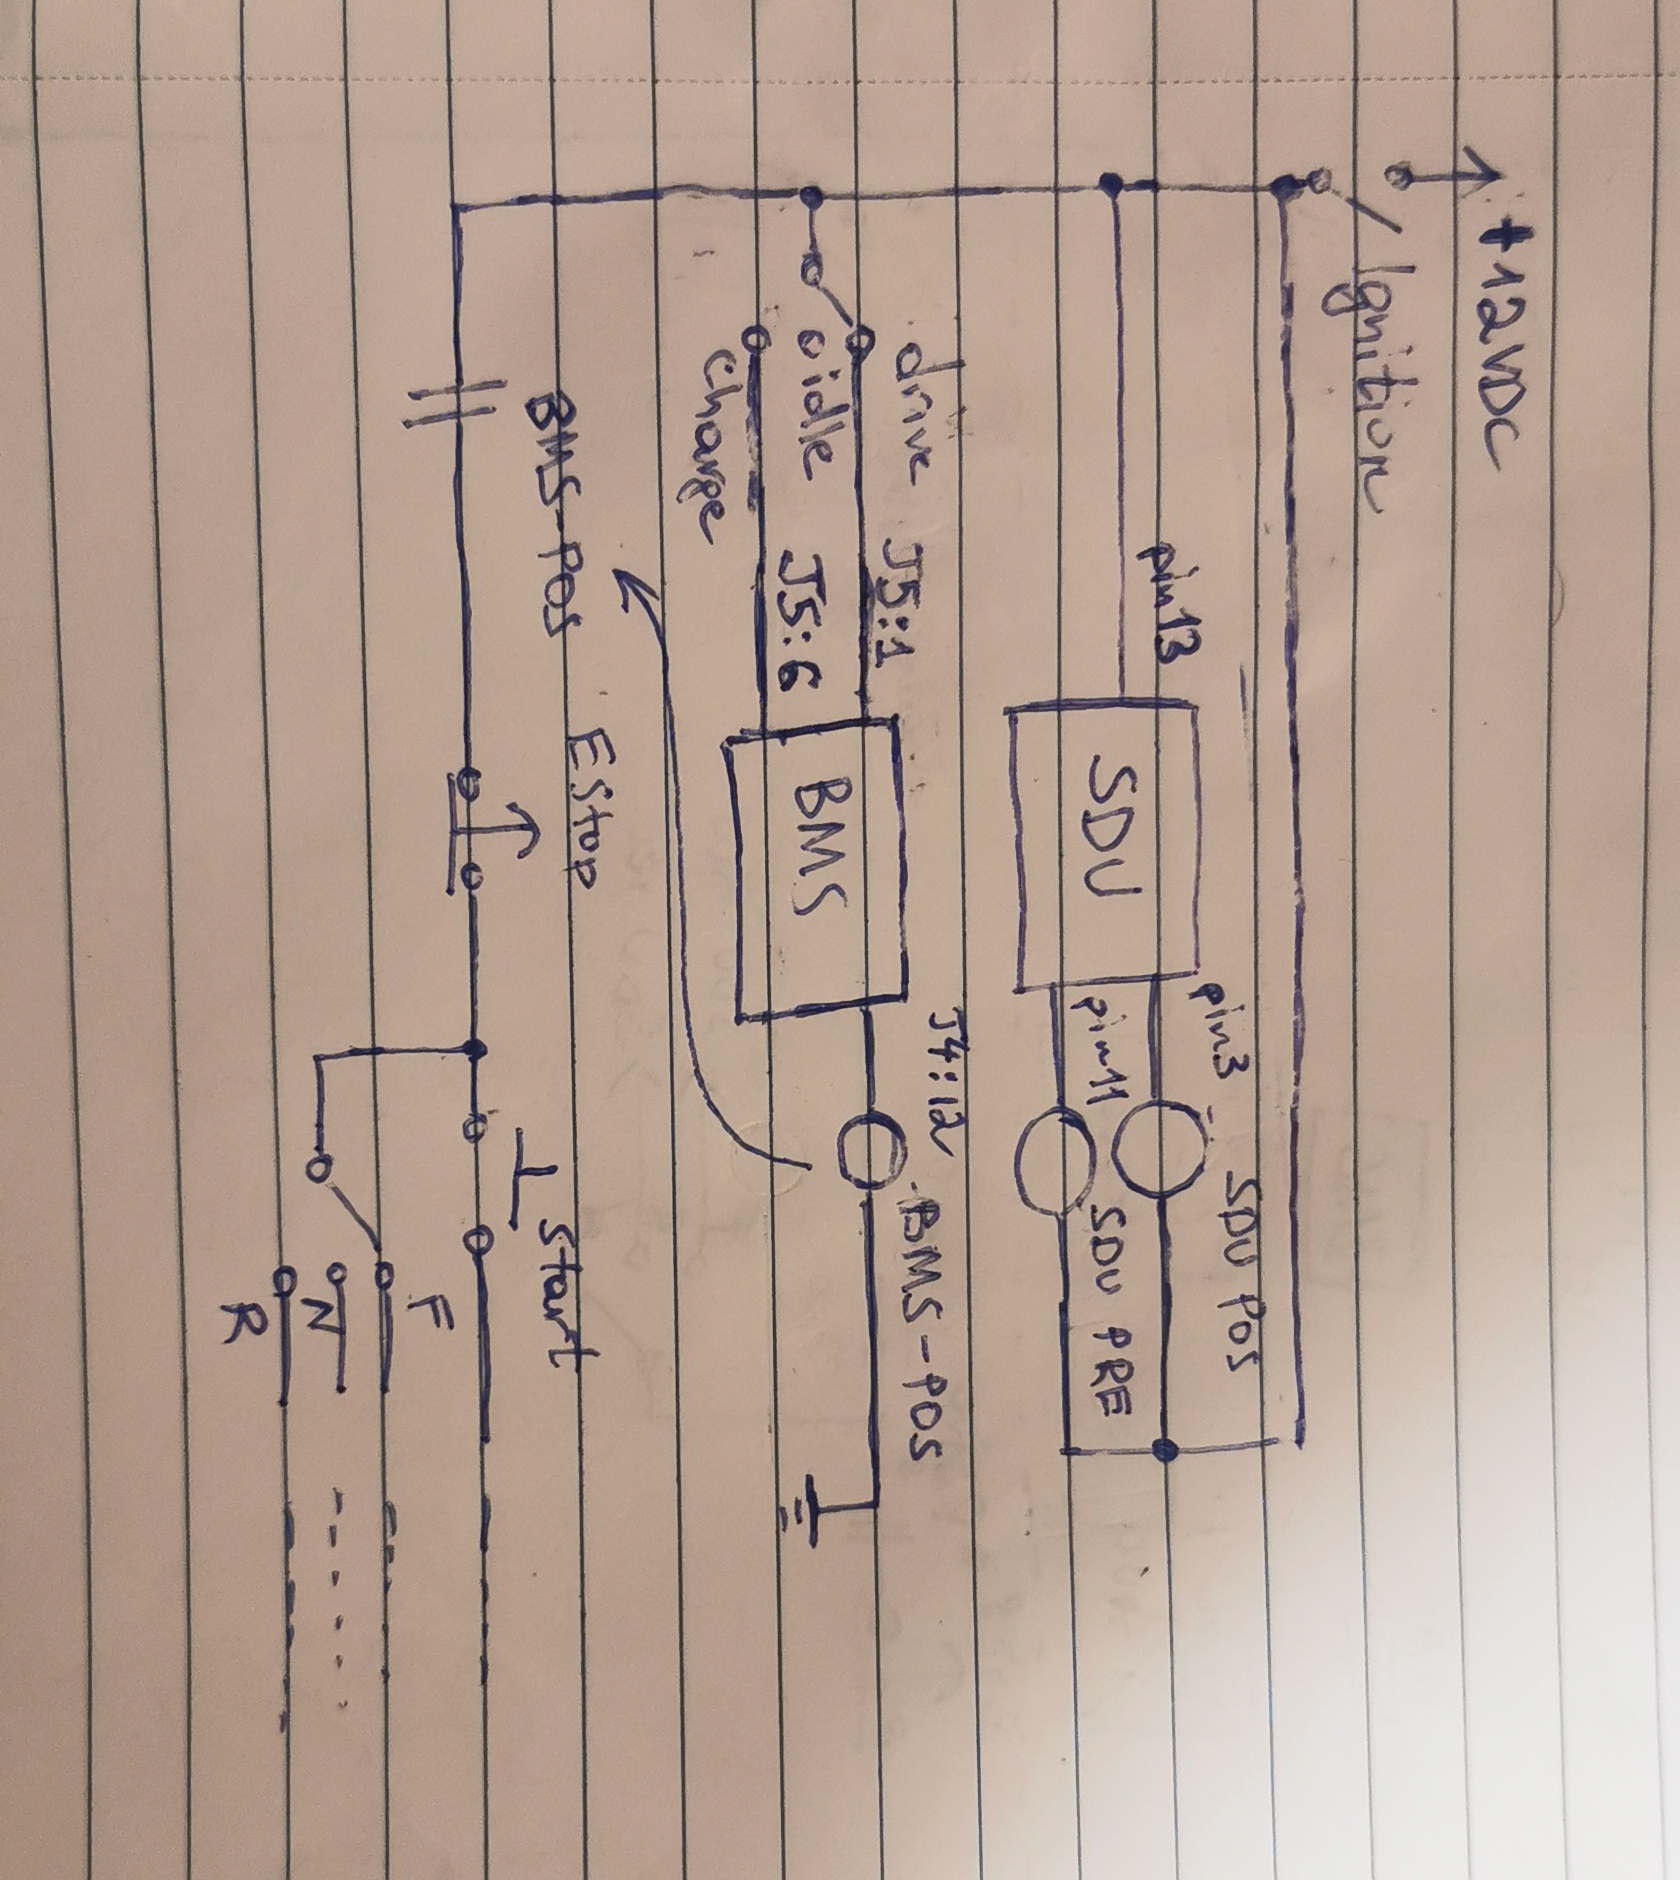 +12VDC
Ignition
pin13
SDU
pin3
SDU POS
pin11
SDU PRE
drive
J5:1
idle
J5:6
charge
BMS
J4:12
BMS-POS
BMS-POS
EStop
Start
F
N
R